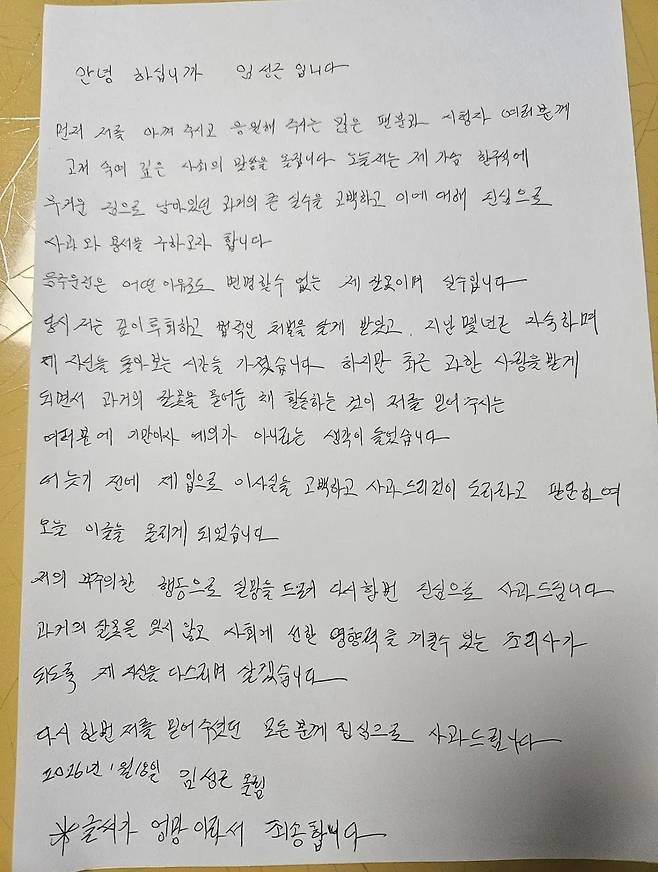 안녕 하십니까 임성근 입니다
먼저 저를 아껴 주시고 응원해 주시는 많은 팬분과 시청자 여러분께
고개 숙여 깊은 사죄의 말씀을 올립니다 오늘 저는 제 가슴 한구석에
무거운 짐으로 남아있던 과거의 큰 실수을 고백하고 이에 대해 진심으로
사과 와 용서를 구하고자 합니다
음주운전은 어떤 이유로도 변명할수 없는 제 잘못이며 실수입니다
당시 저는 깊이 후회하고 법적인 처벌을 달게 받았고, 지난 몇년간 자숙하며
제 자신을 돌아보는 시간을 가졌습니다 하지만 최근 과한 사랑을 받게
되면서 과거의 잘못을 묻어둔 채 활동하는 것이 저를 믿어 주시는
여러분에 기만이자 예의가 아니라는 생각이 들었습니다
더 늦기 전에 제 입으로 이사실을 고백하고 사과드리것이 도리라고 판단하여
오늘 이글을 올리게 되었습니다
저의 부주의한 행동으로 실망을 드려 다시한번 진심으로 사과드립니다
과거의 잘못을 잊지 않고 사회에 선한 영향력을 끼칠수 있는 조리사가
되도록 제 자신을 다스리며 살겠습니다
다시 한번 저를 믿어 주셨던 모든분께 진심으로 사과드립니다
2026년 1월 18일 임성근 올림
※글씨가 엉망 이라서 죄송합니다